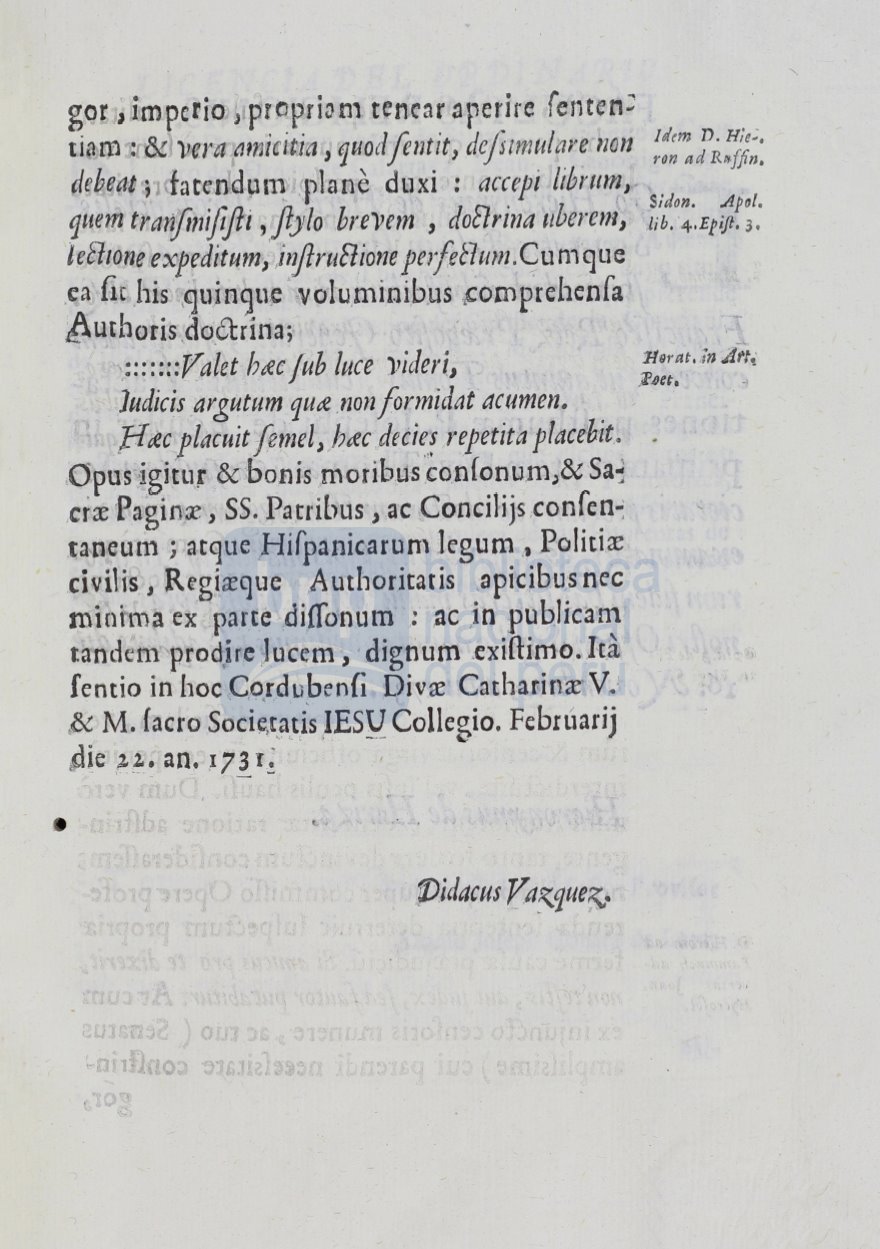 gor, imperio, propriam tenear aperire ſenten-
tiam : & vera amicitia, quod ſentit, deſsimulare non
debeat; fatendum planè duxi : accepi librum,
quem tranſmiſiſti, ſtylo brevem, doctrina uberem,
lectione expeditum, inſtructione perfectum. Cumque
ea ſit his quinque voluminibus comprehenſa
Authoris doctrina;
:::::::Valet hæc ſub luce videri,
Iudicis argutum quæ non formidat acumen.
Hæc placuit ſemel, hæc decies repetita placebit.
Opus igitur & bonis moribus conſonum, & Sa-
cræ Paginæ, SS. Patribus, ac Concilijs conſen-
taneum ; atque Hiſpanicarum legum, Politiæ
civilis, Regiæque Authoritatis apicibus nec
minima ex parte diſſonum : ac in publicam
tandem prodire lucem, dignum exiſtimo. Ità
ſentio in hoc Cordubenſi Divæ Catharinæ V.
& M. ſacro Societatis IESU Collegio. Februarij
die 22. an. 1731.
Didacus Vazquez.
Idem D. Hie-
ron ad Ruffin.
Sidon. Apol.
lib. 4. Epiſt. 3.
Horat. in Art.
Poet.
biblioteca
nacional
del perú